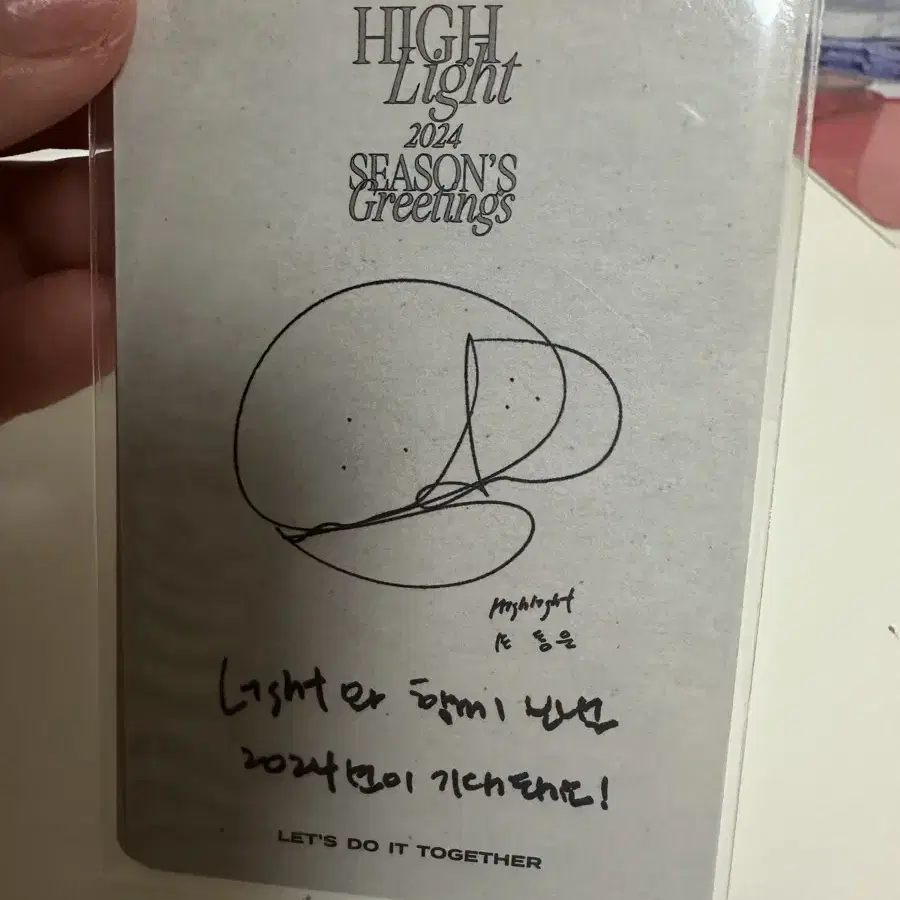 HIGH
Light
2024
SEASON'S
Greetings
Highlight
손동운
Light와 함께
2024년이 기대돼요!
LET'S DO IT TOGETHER